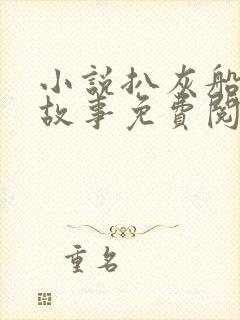 小說扒灰船
故事免費閱
重名